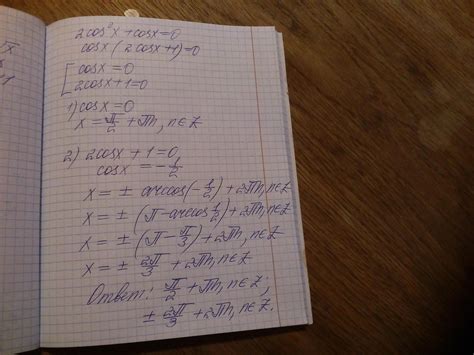 2cos²x + cosx = 0
cosx (2cosx + 1) = 0
[ cosx = 0
2cosx + 1 = 0
1) cosx = 0
x = π/2 + πn, n∈Z
2) 2cosx + 1 = 0,
cosx = -1/2
x = ± arccos(-1/2) + 2πn, n∈Z
x = ± (π - arccos 1/2) + 2πn, n∈Z
x = ± (π - π/3) + 2πn, n∈Z
x = ± 2π/3 + 2πn, n∈Z
Ответ: π/2 + πn, n∈Z;
± 2π/3 + 2πn, n∈Z.